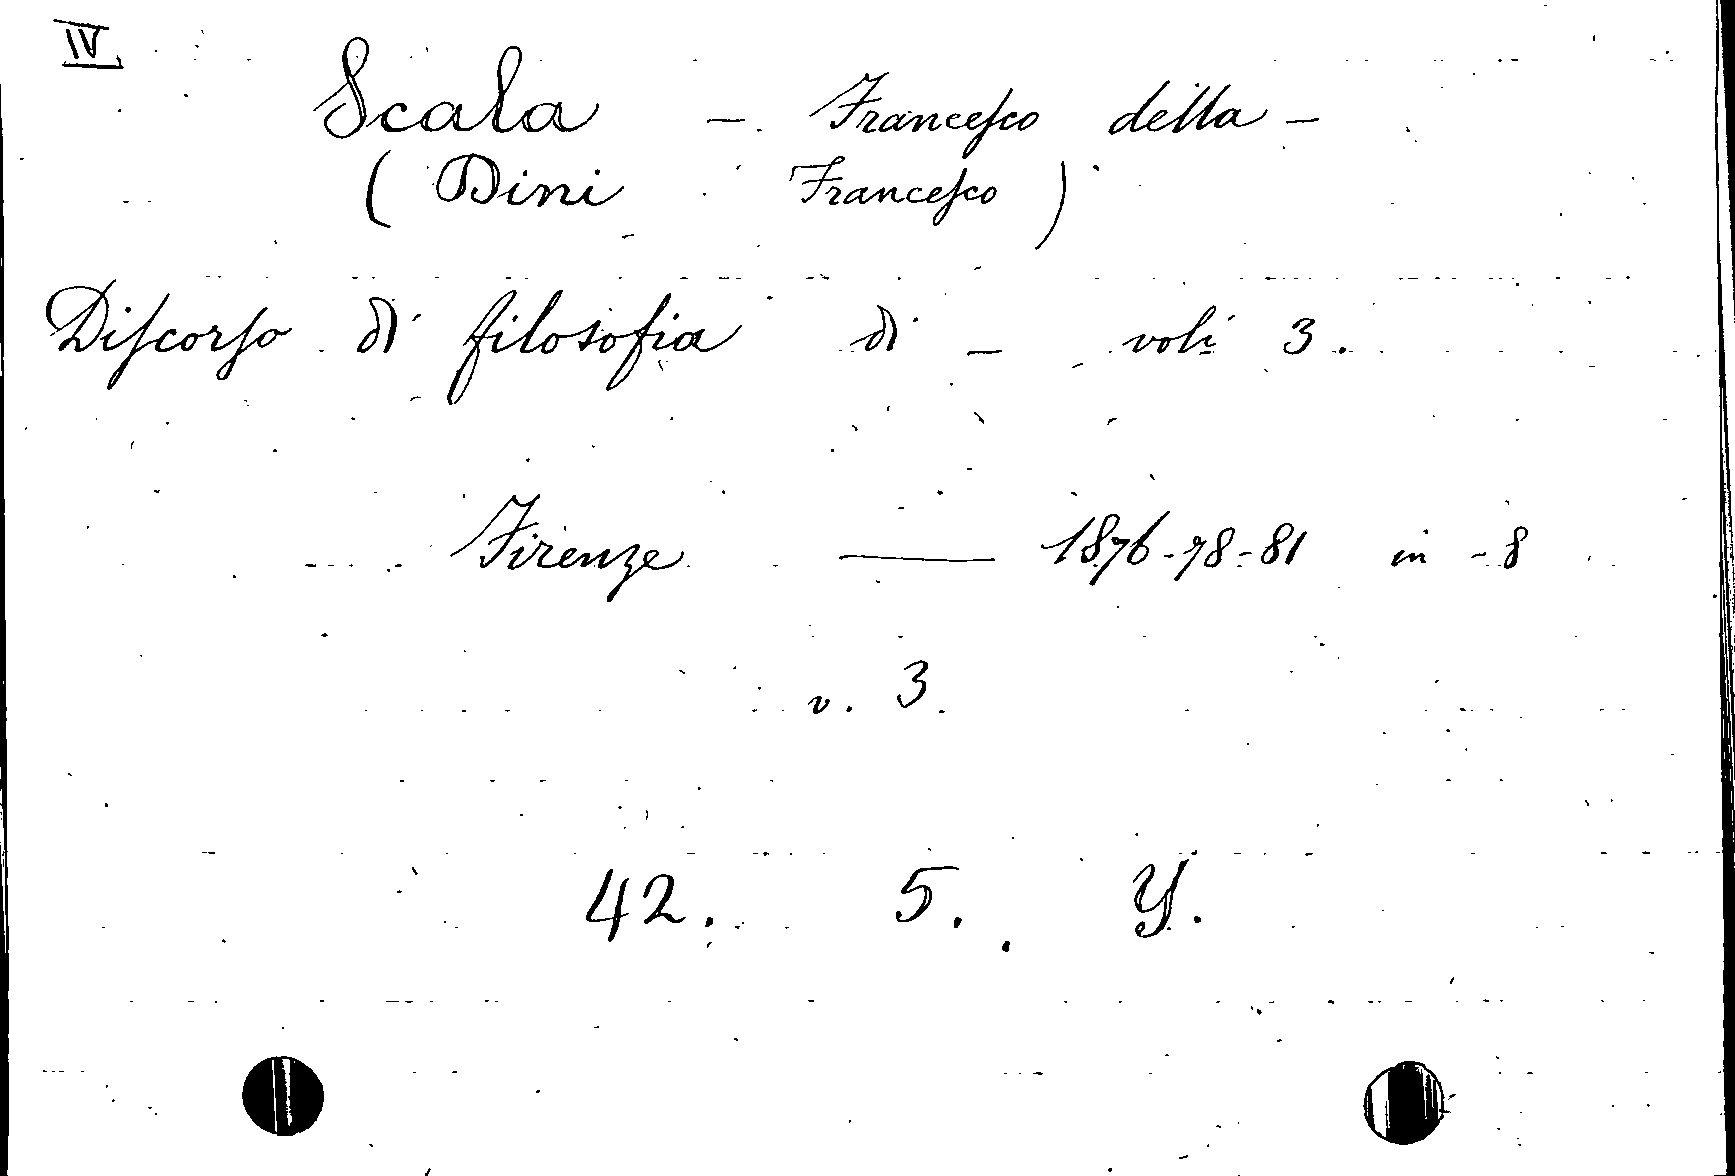 IV.
Scala - Francesco della -
( Dini Francesco )
Discorso di filosofia di - voli 3.
Firenze — 1876-78-81 in - 8
v. 3.
42. 5. Y.